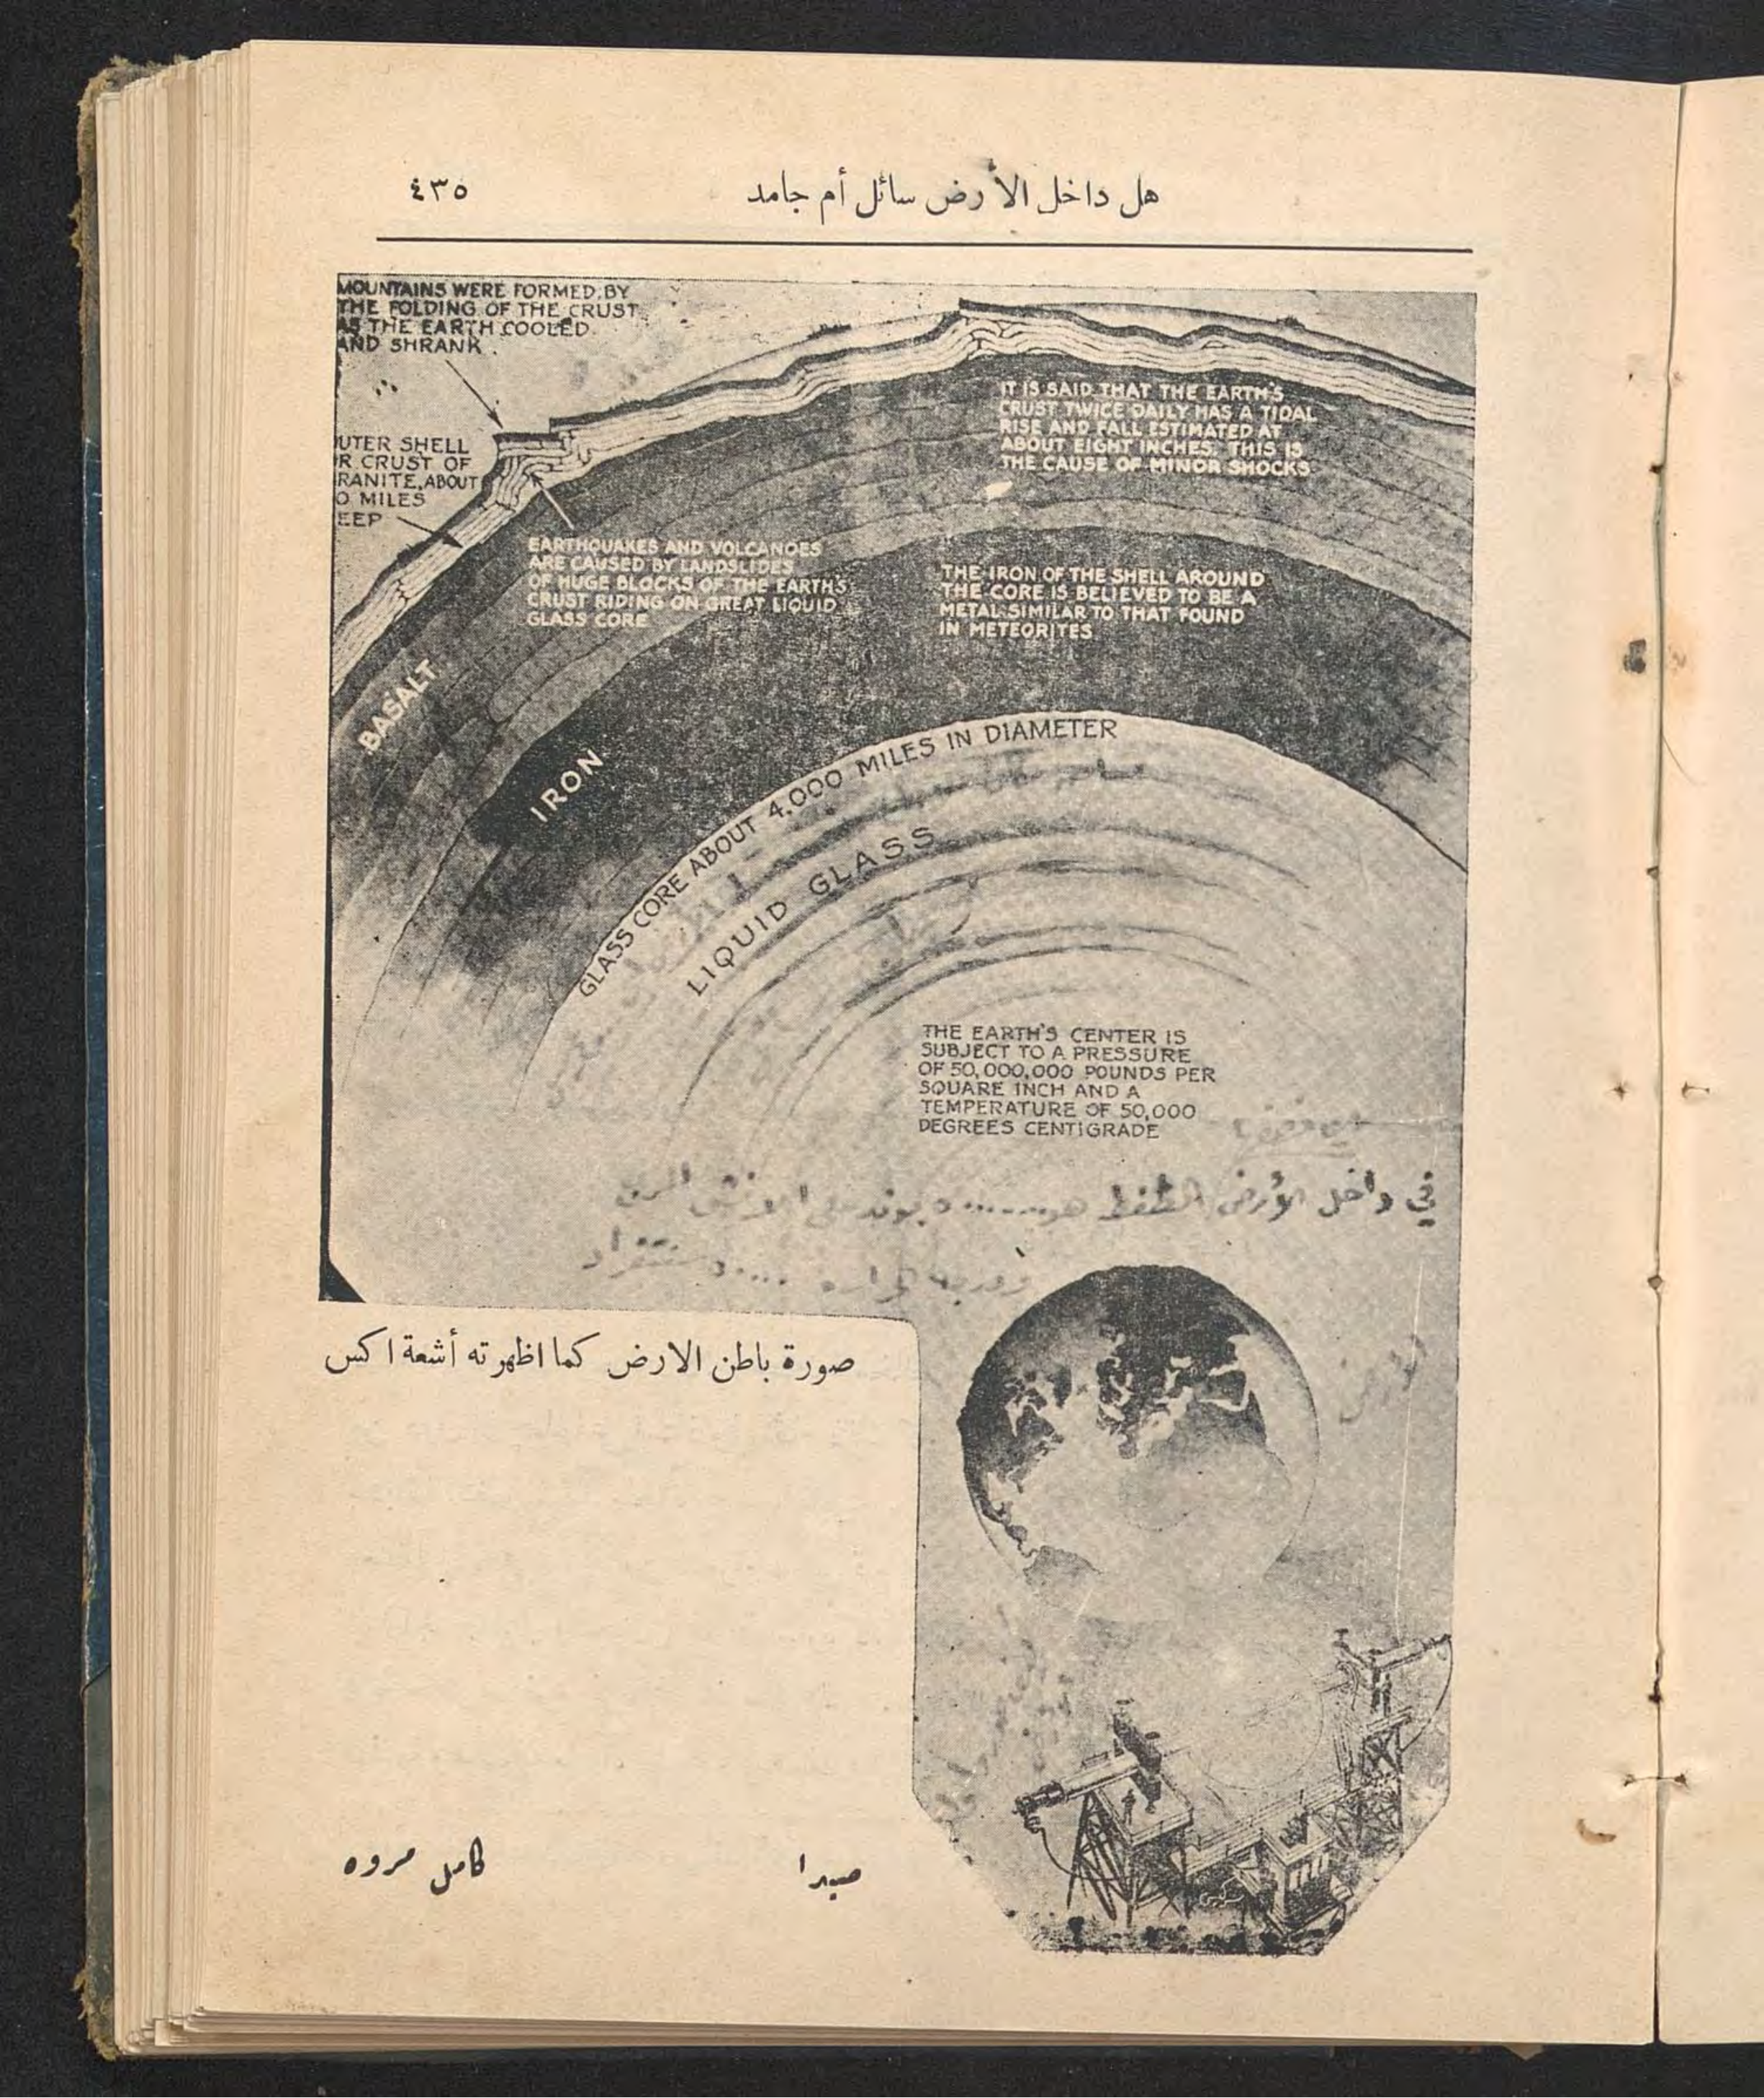 هل داخل الأرض سائل أم جامد
٤٣٥
MOUNTAINS WERE FORMED BY
THE FOLDING OF THE CRUST
AS THE EARTH COOLED
AND SHRANK
IT IS SAID THAT THE EARTH'S
CRUST TWICE DAILY HAS A TIDAL
RISE AND FALL ESTIMATED AT
ABOUT EIGHT INCHES. THIS IS
THE CAUSE OF MINOR SHOCKS
UTER SHELL
R CRUST OF
RANITE, ABOUT
0 MILES
EEP
EARTHQUAKES AND VOLCANOES
ARE CAUSED BY LANDSLIDES
OF HUGE BLOCKS OF THE EARTH'S
CRUST RIDING ON GREAT LIQUID
GLASS CORE
THE IRON OF THE SHELL AROUND
THE CORE IS BELIEVED TO BE A
METAL SIMILAR TO THAT FOUND
IN METEORITES
BASALT
IRON
GLASS CORE ABOUT 4,000 MILES IN DIAMETER
LIQUID GLASS
THE EARTH'S CENTER IS
SUBJECT TO A PRESSURE
OF 50,000,000 POUNDS PER
SQUARE INCH AND A
TEMPERATURE OF 50,000
DEGREES CENTIGRADE
في داخل الأرض الضغط هو
صورة باطن الارض كما اظهرته أشعة اكس
صيدا
كامل مروه